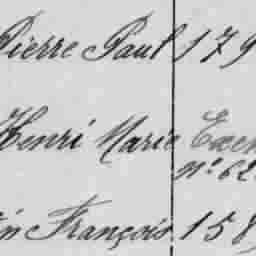 Pierre Paul 179
Henri Marie Exem
n° 62
in François 158